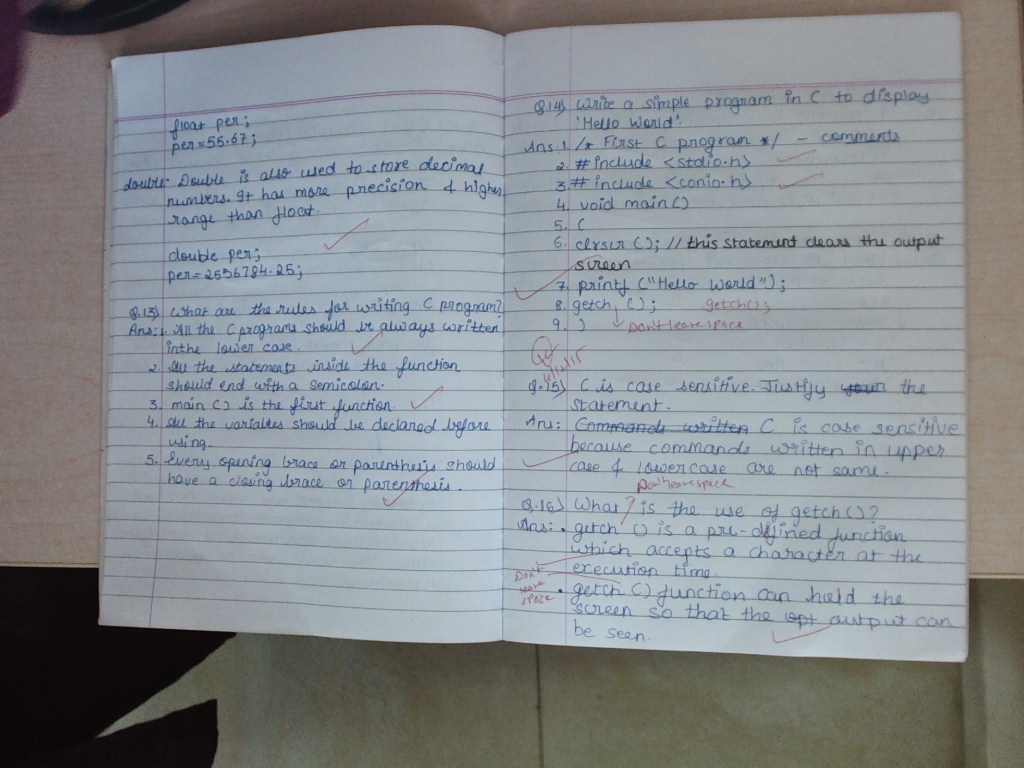 float per;
per=55.67;
double:- Double is also used to store decimal
numbers. It has more precision & higher
range than float.
double per;
per=2556784.25;
Q.13) What are the rules for writing C program?
Ans:1. All the C programs should be always written
in the lower case.
2. All the statements inside the function
should end with a semicolon.
3. main () is the first function.
4. All the variables should be declared before
using.
5. Every opening brace or parenthesis should
have a closing brace or parenthesis.
Q.14) Write a simple program in C to display
'Hello World'.
Ans:1. /* First C program */ - comments
2. # include <stdio.h>
3. # include <conio.h>
4. void main()
5. {
6. clrscr (); // this statement clears the output
screen
7. printf ("Hello World");
8. getch (); getch();
9. } Don't leave space
Q.15) C is case sensitive. Justify your the
statement.
Ans: Commands written C is case sensitive
because commands written in upper
case & lowercase are not same.
Don't leave space
Q.16) What is the use of getch()?
Ans: • getch () is a pre-defined function
which accepts a character at the
execution time.
Don't
leave
space
• getch () function can hold the
screen so that the opt output can
be seen.